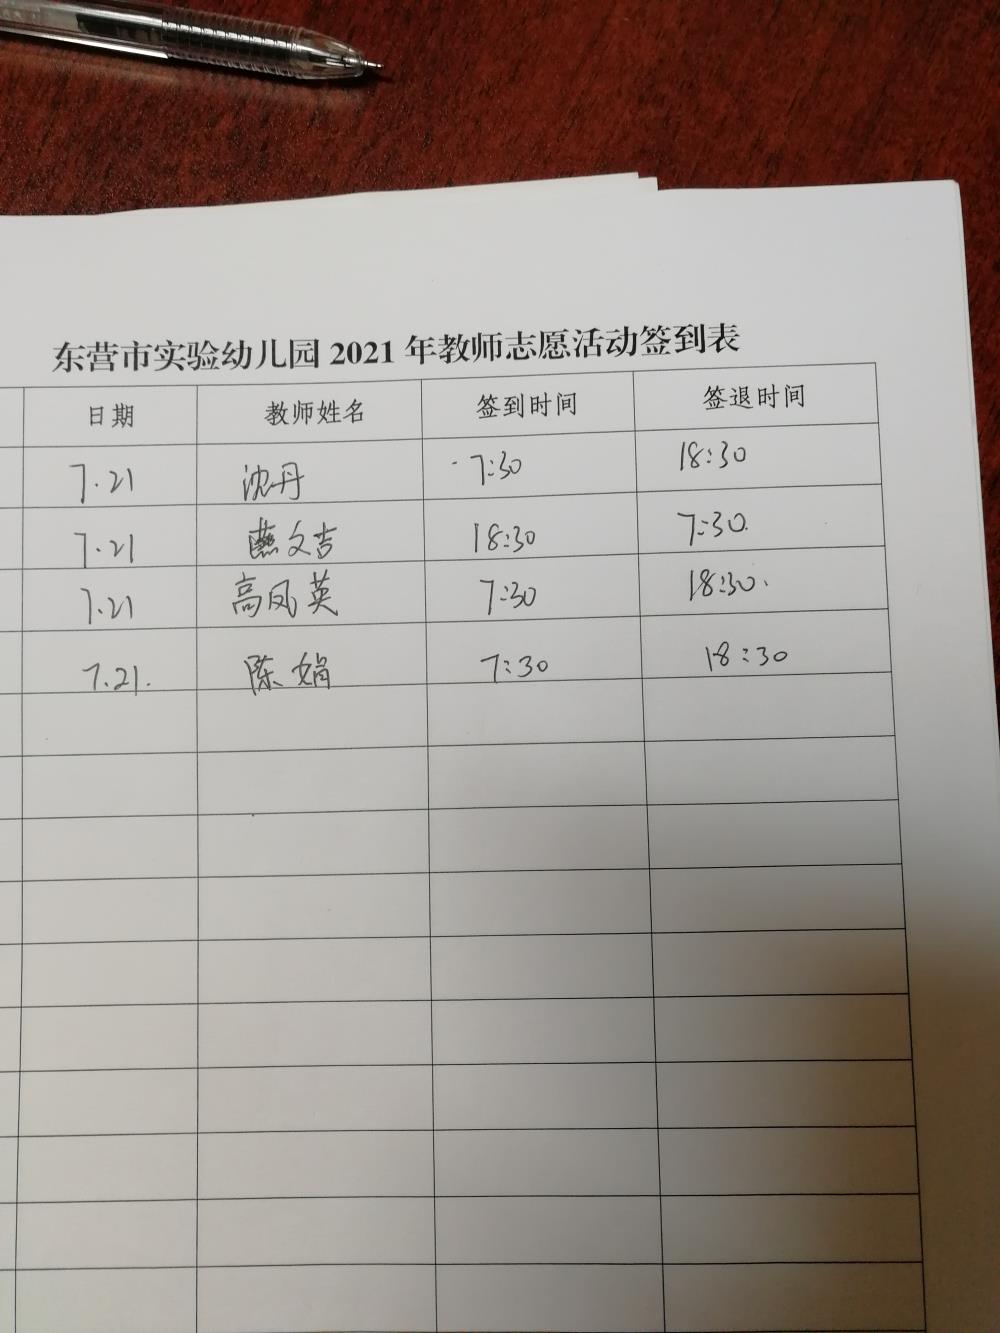 东营市实验幼儿园2021年教师志愿活动签到表
日期 教师姓名 签到时间 签退时间
7.21 沈丹 7:30 18:30
7.21 燕文吉 18:30 7:30.
7.21 高凤英 7:30 18:30.
7.21. 陈娟 7:30 18:30